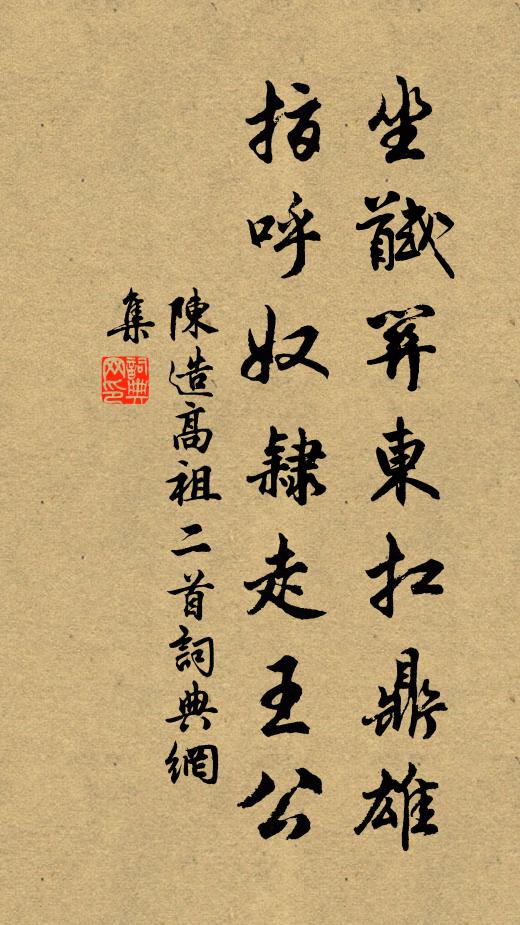 坐馘羿東扛鼎雄
指呼奴隸走王公
陳造高祖二首詞典網
集
詞典
网印